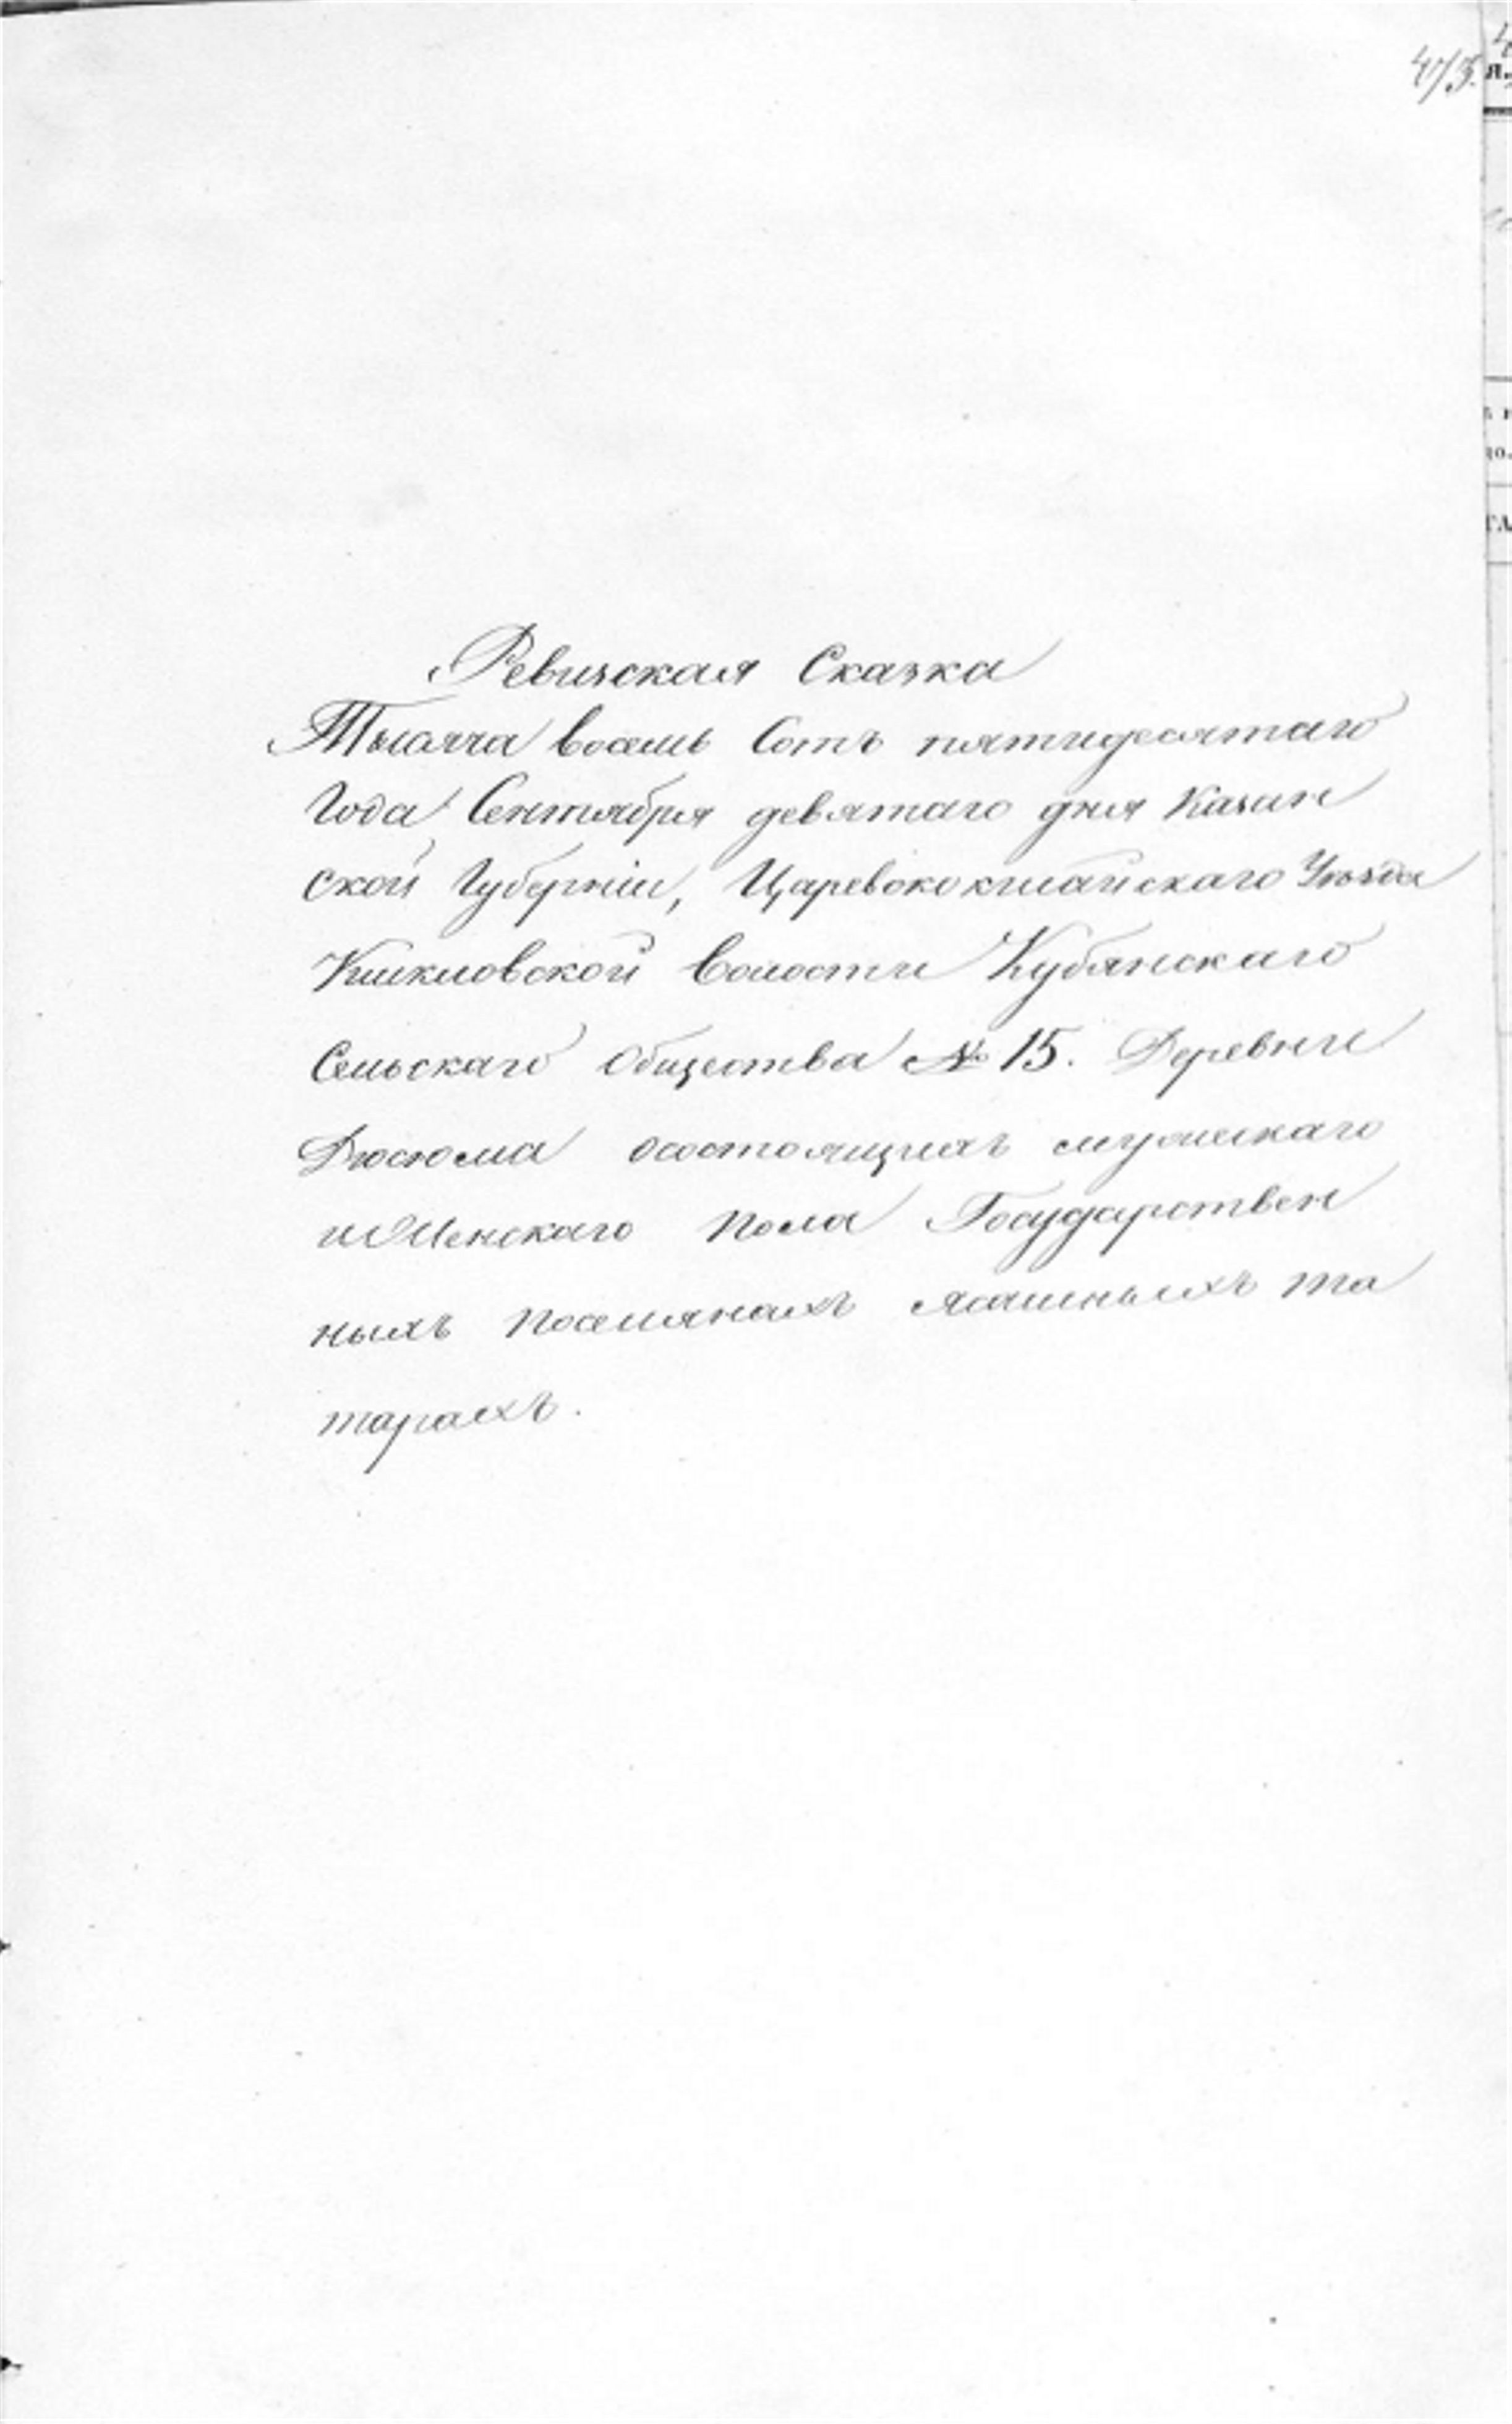 473.
Ревизская Сказка
Тысяча восемь Сотъ пятидесятаго
Года Сентября девятаго дня Казан
ской Губерніи, Царевококшайскаго Уѣзда
Кшкловской волости Кубянскаго
Сельскаго Общества № 15. Деревни
Дюсюма осостоящихъ мужескаго
и Женскаго пола Государствен
ныхъ поселянахъ Ясашныхъ та
тарахъ.